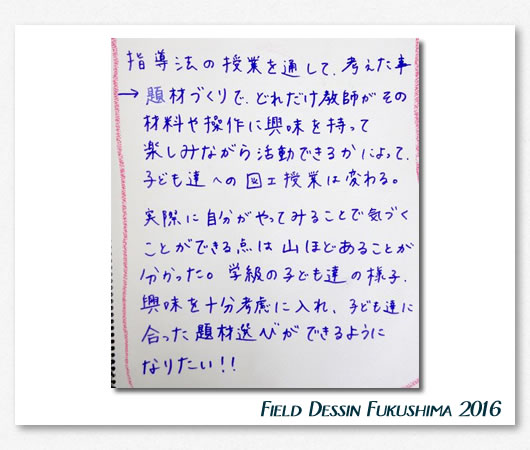 指導法の授業を通して、考えた事
→題材づくりで、どれだけ教師がその
材料や操作に興味を持って
楽しみながら活動できるかによって、
子ども達への図工授業は変わる。
実際に自分がやってみることで気づく
ことができる点は山ほどあることが
分かった。学級の子ども達の様子、
興味を十分考慮に入れ、子ども達に
合った題材選びができるように
なりたい!!
FIELD DESSIN FUKUSHIMA 2016